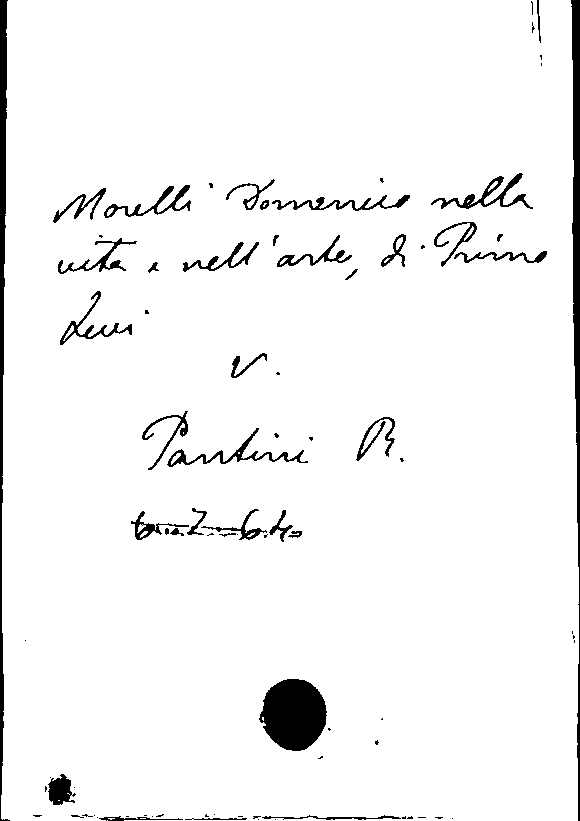 Morelli Domenico nella
vita e nell'arte, di Primo
Levi
V.
Pantini R.